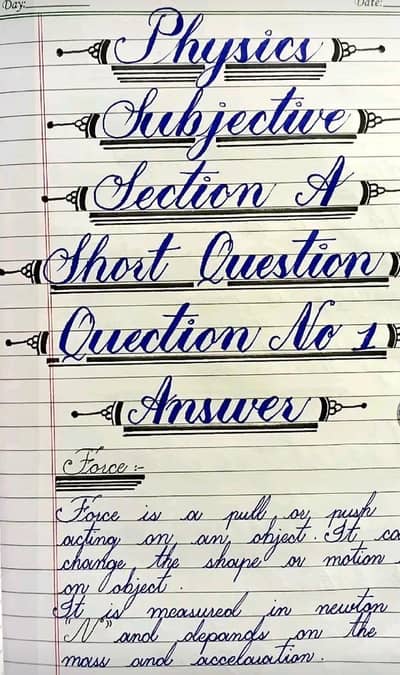 Day:
Date:
Physics
Subjective
Section A
Short Question
Quection No 1
Answer
Force :-
Force is a pull or push
acting on an object. It ca
change the shape or motion
on object.
It is measured in newton
"N" and depands on the
mass and accelaration.